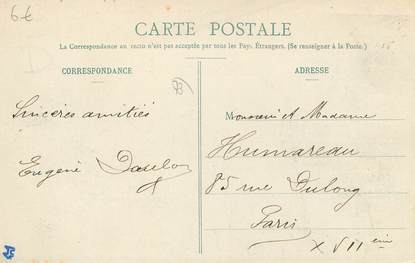 6€
CARTE POSTALE
La Correspondance au recto n'est pas acceptée par tous les Pays Étrangers. (Se renseigner à la Poste.)
CORRESPONDANCE
Sincères amitiés
Eugène
ADRESSE
Monsieur et Madame
Humareau
85 rue Dulong
Paris
XVIIème